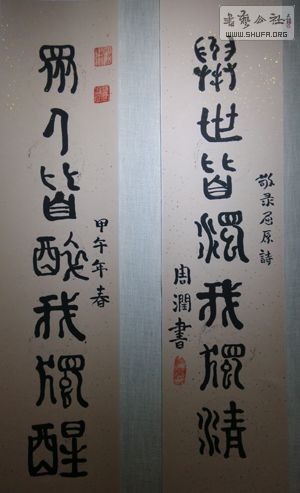 書藝公社
WWW.SHUFA.ORG
敬录屈原詩
舉世皆濁我獨清
周潤書
甲午年春
眾人皆醉我獨醒